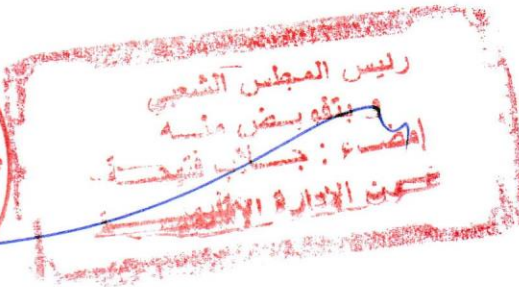 رئيس المجلس الشعبي
و بتفويض منه
إمضاء :
عون الإدارة الإقليمية